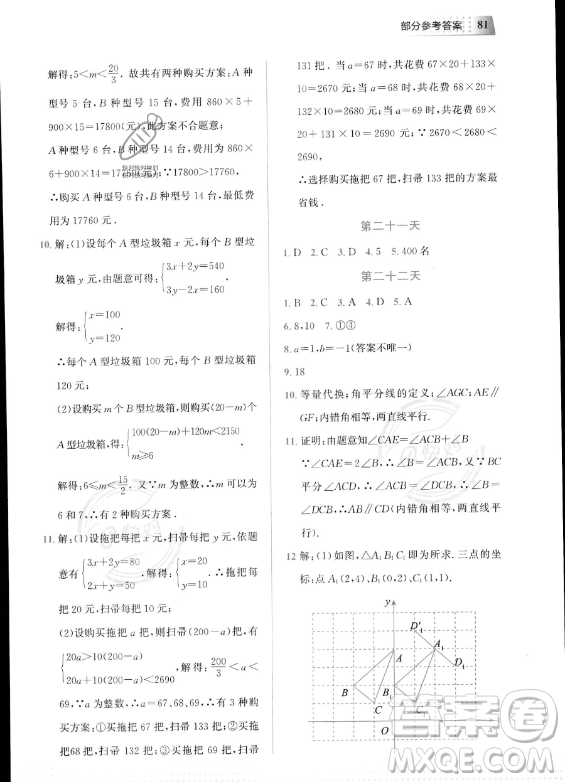 部分参考答案 81
解得:5<m<20/3. 故共有两种购买方案:A种
型号 5 台,B 种型号 15 台,费用 860×5+
900×15=17800(元),此方案不合题意;
A 种型号 6 台,B 种型号 14 台,费用 860×
6+900×14=17760(元). ∵17760<17800,
∴购买 A 种型号 6 台,B 种型号 14 台,费
用为 17760 元.
10. 解:(1)设每个 A 型垃圾箱 x 元,每个 B 型垃
圾箱 y 元,由题意可得:{3x+2y=540
160
解得:{x=100
y=120
∴每个 A 型垃圾箱 100 元,每个 B 型垃圾箱
120 元;
(2)设购买 m 个 B 型垃圾箱,则购买(20-m)个
A 型垃圾箱,{100(20-m)+120m<2150
m≥6
解得:6≤m<15/2. ∵m 为整数,∴m 可以为
6 和 7,有 2 种购买方案.
11. 解:(1)设拖把每把 x 元,扫帚每把 y 元,依题
意有{3x+2y=80
2x+y=50, 解得:{x=20
y=10. ∴拖把每
把 20 元,扫帚每把 10 元;
(2)设购买拖把 a 把,则扫帚(200-a)把,有
{20a>10(200-a)
20a+10(200-a)<2690 解得:200/3<a<
69,∵a 为整数,∴a=67,68,69,有 3 种购买
方案:①买拖把 67 把,扫帚 133 把;②买拖
把68 把,扫帚 132 把;③买拖把 69 把,扫帚
131 把. 当 a=67 时,共花费 67×20+133
×10=2670 元;当 a=68 时,共花费 68×20
+132×10=2680元;当a=69时,共花费69×
20+131×10=2690元;∵2670<2680<
2690,
∴选择购买拖把 67 把,扫帚 133 把的方案最
省钱.
第二十一天
1. D 2. C 3. D 4. 5 5. 400 名
第二十二天
1. B 2. C 3. C 4. D 5. A
6. 8,10 7. ①④
8. a=1,b=-1(答案不唯一)
9. 18
10. 等量代换;角平分线的定义;∠AGC;AE∥
GF;内错角相等,两直线平行.
11. 证明:由题意知∠CAE=∠ACB+∠B
∵∠CAE=∠ACB+∠B ∵BC
平分∠ACD
∴(内错角相等,两直线平
行).
12. 解:(1)如图,△A₁B₁C₁ 即为所求. 三点的坐
标:点 A₁(2,4),B₁(0,1),C₁(1,0).
y
D′₁
A A₁
D₁
B B₁
C C₁
O
答案圈
MXQE.COM